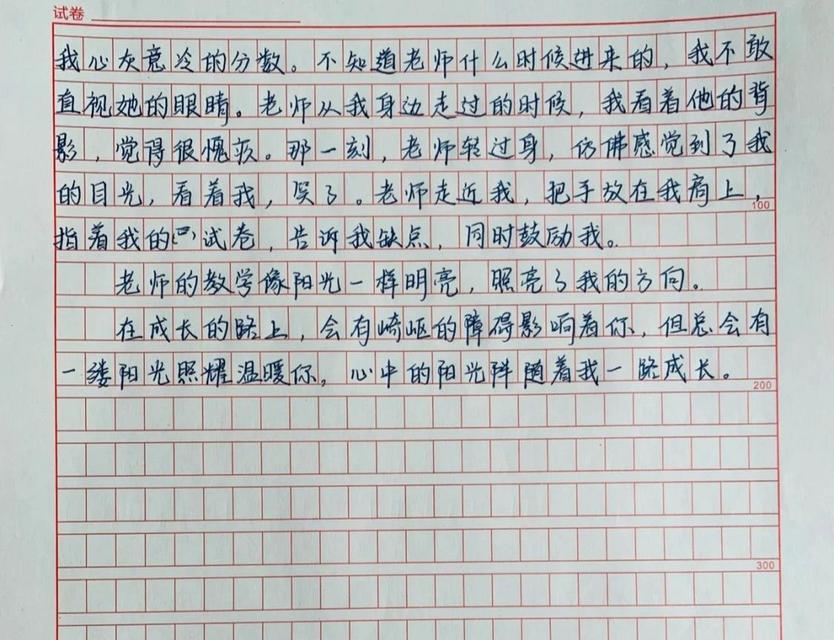 试卷
我心灰意冷的分数。不知道老师什么时候进来的，我不敢
直视她的眼睛。老师从我身边走过的时候，我看着他的背
影，觉得很愧疚。那一刻，老师转过身，仿佛感觉到了我
的目光，看着我，笑了。老师走近我，把手放在我肩上，
100
指着我的试卷，告诉我缺点，同时鼓励我。
老师的教学像阳光一样明亮，照亮了我的方向。
在成长的路上，会有崎岖的障碍影响着你，但总会有
一缕阳光照耀温暖你，心中的阳光阵随着我一路成长。
200
300